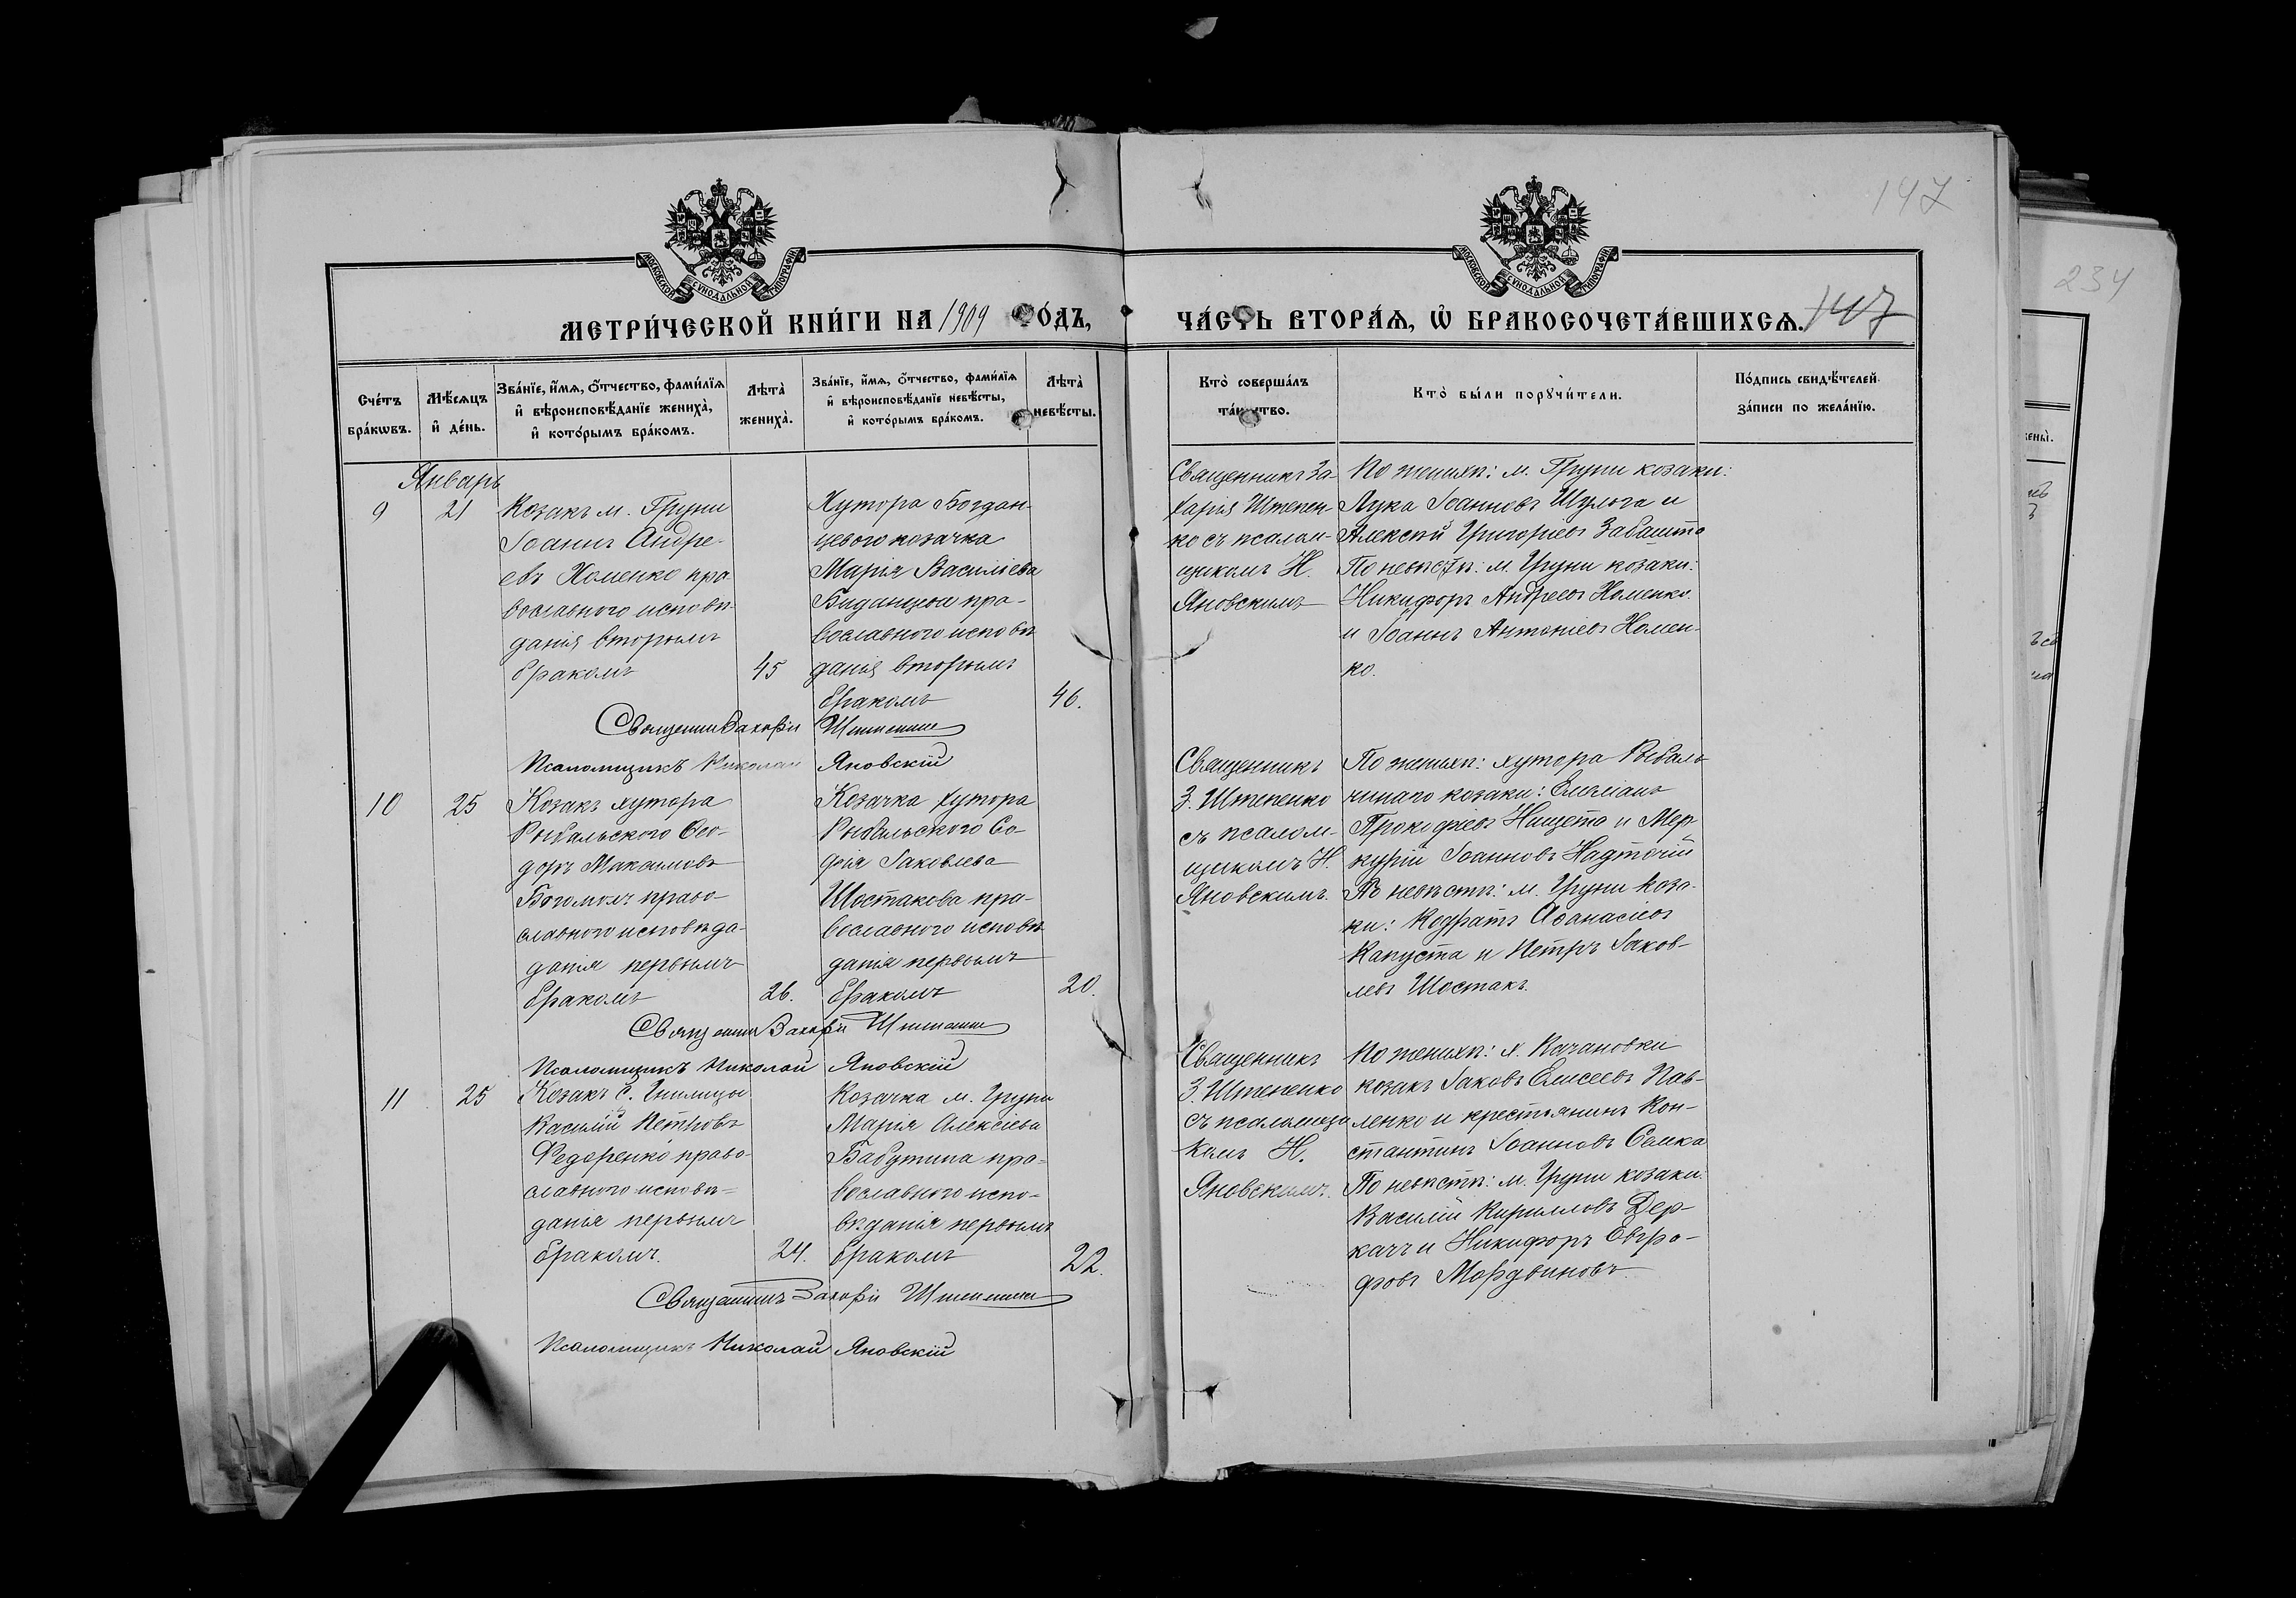 147
147
234
МОСКОВСКОЙ СУНОДАЛЬНОЙ ТИПОГРАФІИ
МОСКОВСКОЙ СУНОДАЛЬНОЙ ТИПОГРАФІИ
МЕТРИ́ЧЕСКОЙ КНИ́ГИ НА 1909 ГО́ДЪ,
ЧА́СТЬ ВТОРА́Ѧ, Ѽ БРАКОСОЧЕТА́ВШИХСѦ.
Сче́тъ бра́кѡвъ.
Мѣ́сѧцъ и҆ де́нь.
Зва́нїе, и҆́мѧ, ѻ҆́тчество, фами́лїѧ
и҆ вѣроисповѣ́данїе жениха̀,
и҆ кото́рымъ бра́комъ.
Лѣта̀ жениха̀.
Зва́нїе, и҆́мѧ, ѻ҆́тчество, фами́лїѧ
и҆ вѣроисповѣ́данїе невѣ́сты,
и҆ кото́рымъ бра́комъ.
Лѣта̀ невѣ́сты.
Кто̀ соверша́лъ
та́инство.
Кто̀ бы́ли порꙋчи́тели.
По́дпись свидѣ́телей
за́писи по жела́нїю.
Январь
9
21
Козакъ м. Груни
Іоаннъ Андре-
евъ Хоменко пра-
вославного исповѣ-
данія вторымъ
бракомъ
45
Хутора Богдан-
цевого козачка
Марія Василіева
православного исповѣ
данія вторымъ
бракомъ
46.
Священникъ За-
харія Штепен-
ко съ псалом-
щикомъ Н.
Яновскимъ
По женихѣ: м. Груни козаки:
Лука Іоанновъ Шулога и
Алексій Григоріевъ Забашта
По невѣстѣ: м. Груни козаки:
Никифоръ Андреевъ Хоменко
и Іоаннъ Антоніевъ Хомен-
ко.
Священникъ Захарія Штепенко
Псаломщикъ Николай Яновскій
10
25
Козакъ хутора
Рыбальского Ѳео-
доръ Максимовъ
Богомолъ право-
славного исповѣда-
данія первымъ
бракомъ
26.
Козачка хутора
Рыбальского Со-
фія Іаковлева
Шостакова пра-
вославного исповѣ
данія первымъ
бракомъ
20.
Священникъ
З. Штепенко
съ псалом-
щикомъ Н.
Яновскимъ.
По женихѣ: хутора Рыбаль
козаки: Емиліанъ
Прокофіевъ Нищета и Мер-
курій Іоанновъ Надточій
По невѣстѣ: м. Груни коза-
ки: Кодратъ Аѳанасіевъ
Капуста и Петръ Іаков-
левъ Шостакъ.
Священникъ Захарія Штепенко
Псаломщикъ Николай Яновскій
11
25
Козакъ с. Гнилицы
Василій Петровъ
Федоренко право-
славного исповѣ=
данія первымъ
бракомъ.
24.
Козачка м. Груни
Марія Алексіева
Бабутина пра=
вославного испо-
вѣданія первымъ
бракомъ
22.
Священникъ
З. Штепенко
съ псаломщи
комъ Н.
Яновскимъ.
По женихѣ: х. Качановки
козакъ Іаковъ Елисеевъ Пав-
ленко и крестьянинъ Кон-
стантинъ Іоанновъ Сомка
По невѣстѣ: м. Груни козаки:
Василій Кирилловъ Дер-
качъ и Никифоръ Евгра-
фовъ Мордвиновъ.
Священникъ Захарія Штепенко
Псаломщикъ Николай Яновскій